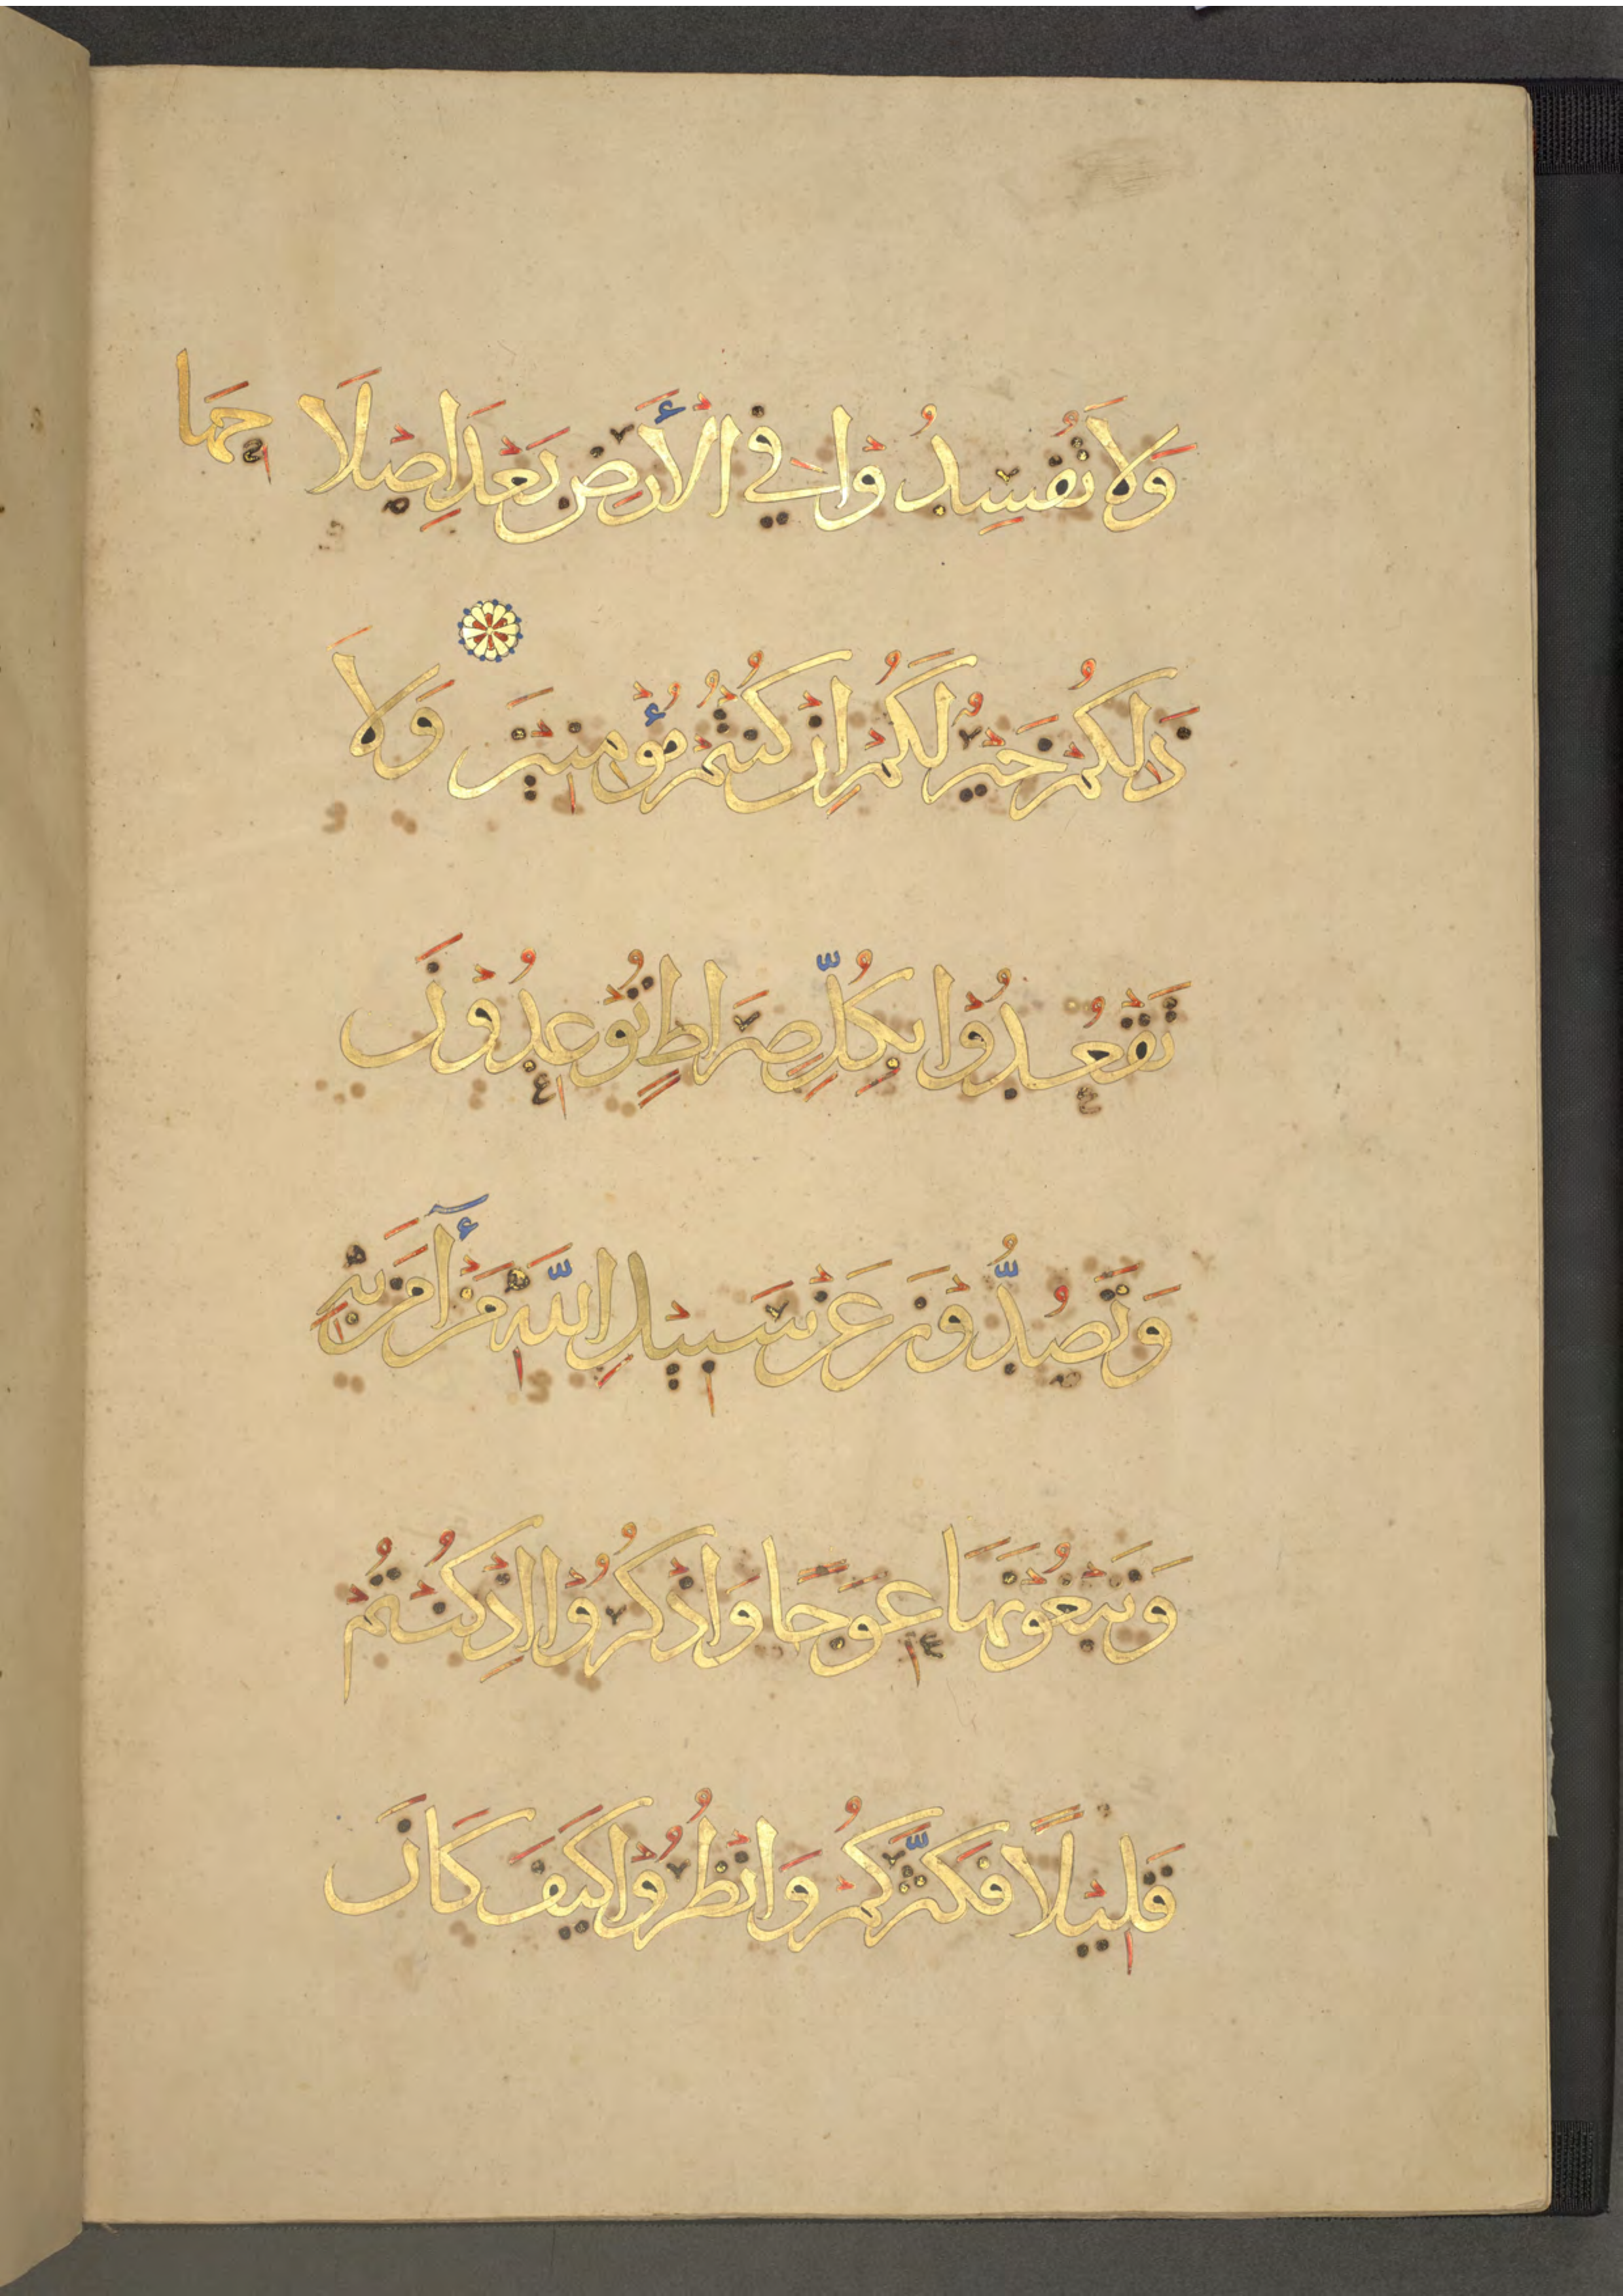 وَلَا تُفْسِدُوْا فِي الْأَرْضِ بَعْدَ اِصْلَاحِهَا
ذٰلِكُمْ خَيْرٌ لَكُمْ اِنْ كُنْتُمْ مُؤْمِنِيْنَ وَلَا
تَقْعُدُوْا بِكُلِّ صِرَاطٍ تُوْعِدُوْنَ
وَتَصُدُّوْنَ عَنْ سَبِيْلِ اللّٰهِ مَنْ أٓمَنَ بِهِ
وَتَبْغُوْنَهَا عِوَجًا وَاذْكُرُوْا اِذْ كُنْتُمْ
قَلِيْلًا فَكَثَّرَكُمْ وَانْظُرُوْا كَيْفَ كَانَ